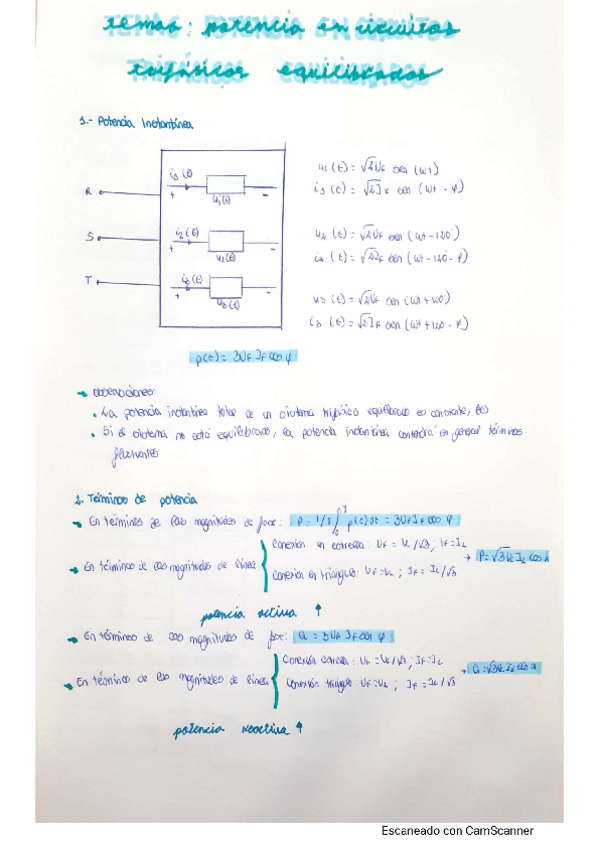 tema: potencia en circuitos
trifásicos equilibrados
1.- Potencia Instantánea
R
S
T
i₁(t)
+ -
u₁(t)
i₂(t)
+ -
u₂(t)
i₃(t)
+ -
u₃(t)
u₁(t) = √2 U_F sen (wt)
i₁(t) = √2 I_F sen (wt - φ)
u₂(t) = √2 U_F sen (wt - 120)
i₂(t) = √2 I_F sen (wt - 120 - φ)
u₃(t) = √2 U_F sen (wt + 120)
i₃(t) = √2 I_F sen (wt + 120 - φ)
p(t) = 3U_F I_F cos φ
→ observaciones:
• La potencia instantánea total de un sistema trifásico equilibrado es constante,
• Si el sistema no está equilibrado, la potencia instantánea contendrá en general términos
fluctuantes
2. Términos de potencia
→ En términos de las magnitudes de fase: P = 1/T ∫₀ᵀ p(t) dt = 3U_F I_F cos φ
→ En términos de las magnitudes de línea
Conexión en estrella: U_F = U_L/√3; I_F = I_L
Conexión en triángulo: U_F = U_L; I_F = I_L/√3
→ P = √3 U_L I_L cos
potencia activa ↑
→ En términos de las magnitudes de fase: Q = 3U_F I_F sen φ
→ En términos de las magnitudes de línea
Conexión estrella: U_F = U_L/√3; I_F = I_L
Conexión triángulo: U_F = U_L; I_F = I_L/√3
→ Q = √3 U_L I_L
potencia reactiva ↑
Escaneado con CamScanner